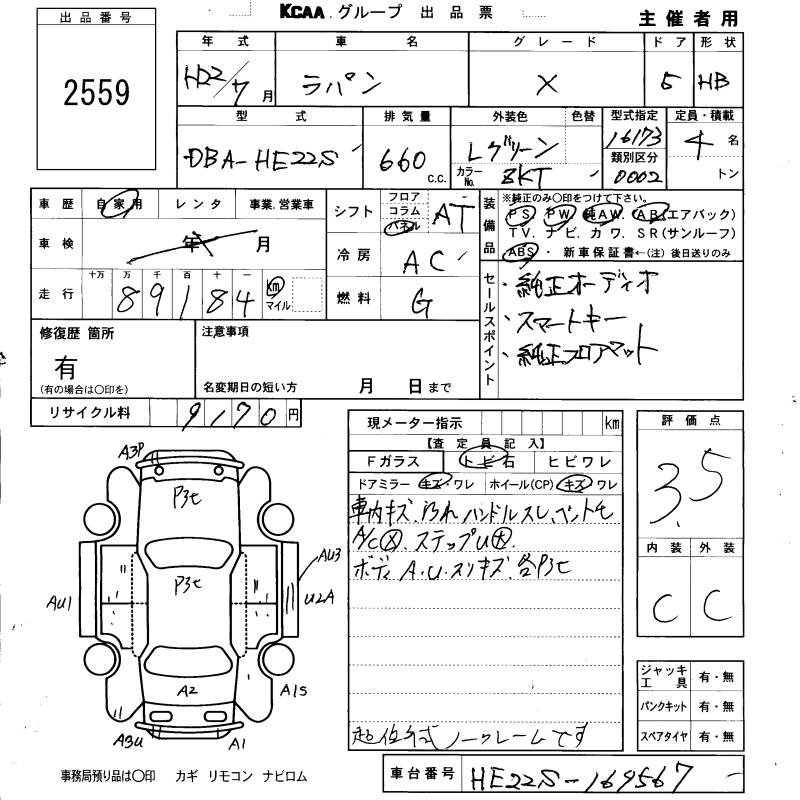 KCAA グループ 出品票
主催者用
出品番号
2559
年式 車名 グレード ドア 形状
H22/7月 ラパン X 5 HB
型式 排気量 外装色 色替 型式指定 定員・積載
DBA-HE22S 660 c.c. Lグリーン 16173 4名
カラーNo. ZKT 類別区分 0002 トン
車歴 自家用 レンタ 事業.営業車
シフト フロア コラム パネル AT
装備品 ※純正のみ○印をつけて下さい。
PS PW 純AW. AB(エアバック)
TV. ナビ. カワ. SR(サンルーフ)
ABS・ 新車保証書←(注)後日送りのみ
車検 年 月
冷房 AC
走行 十万 万 千 百 十 一
89184 km マイル
燃料 G
セールスポイント
・純正オーディオ
・スマートキー
・純正フロアマット
修復歴 箇所
有
(有の場合は○印を)
注意事項
名変期日の短い方 月 日まで
リサイクル料 9170円
現メーター指示 km
【査定員記入】
Fガラス トビ石 ヒビワレ
ドアミラー キズ・ワレ ホイール(CP) キズ・ワレ
車内キズ、汚れ ハンドルスレ、
A/C ステップU
ボディ A.U.スリキズ. 各P3セ
ノークレームです
評価点
3.5
内装 外装
C C
ジャッキ工具 有・無
パンクキット 有・無
スペアタイヤ 有・無
A3P
P3セ
P3セ
AU3
AU1
U2A
A2
A1S
A3U
A1
事務局預り品は○印 カギ リモコン ナビロム
車台番号 HE22S-169567